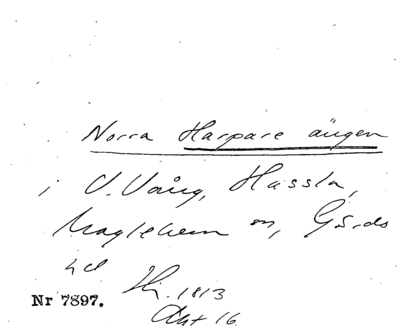 Norra Harpare ängen
i V. Vång, Hassla,
Maglehem sn, Gärds
hd Hj. 1813
Akt 16
Nr 7897.